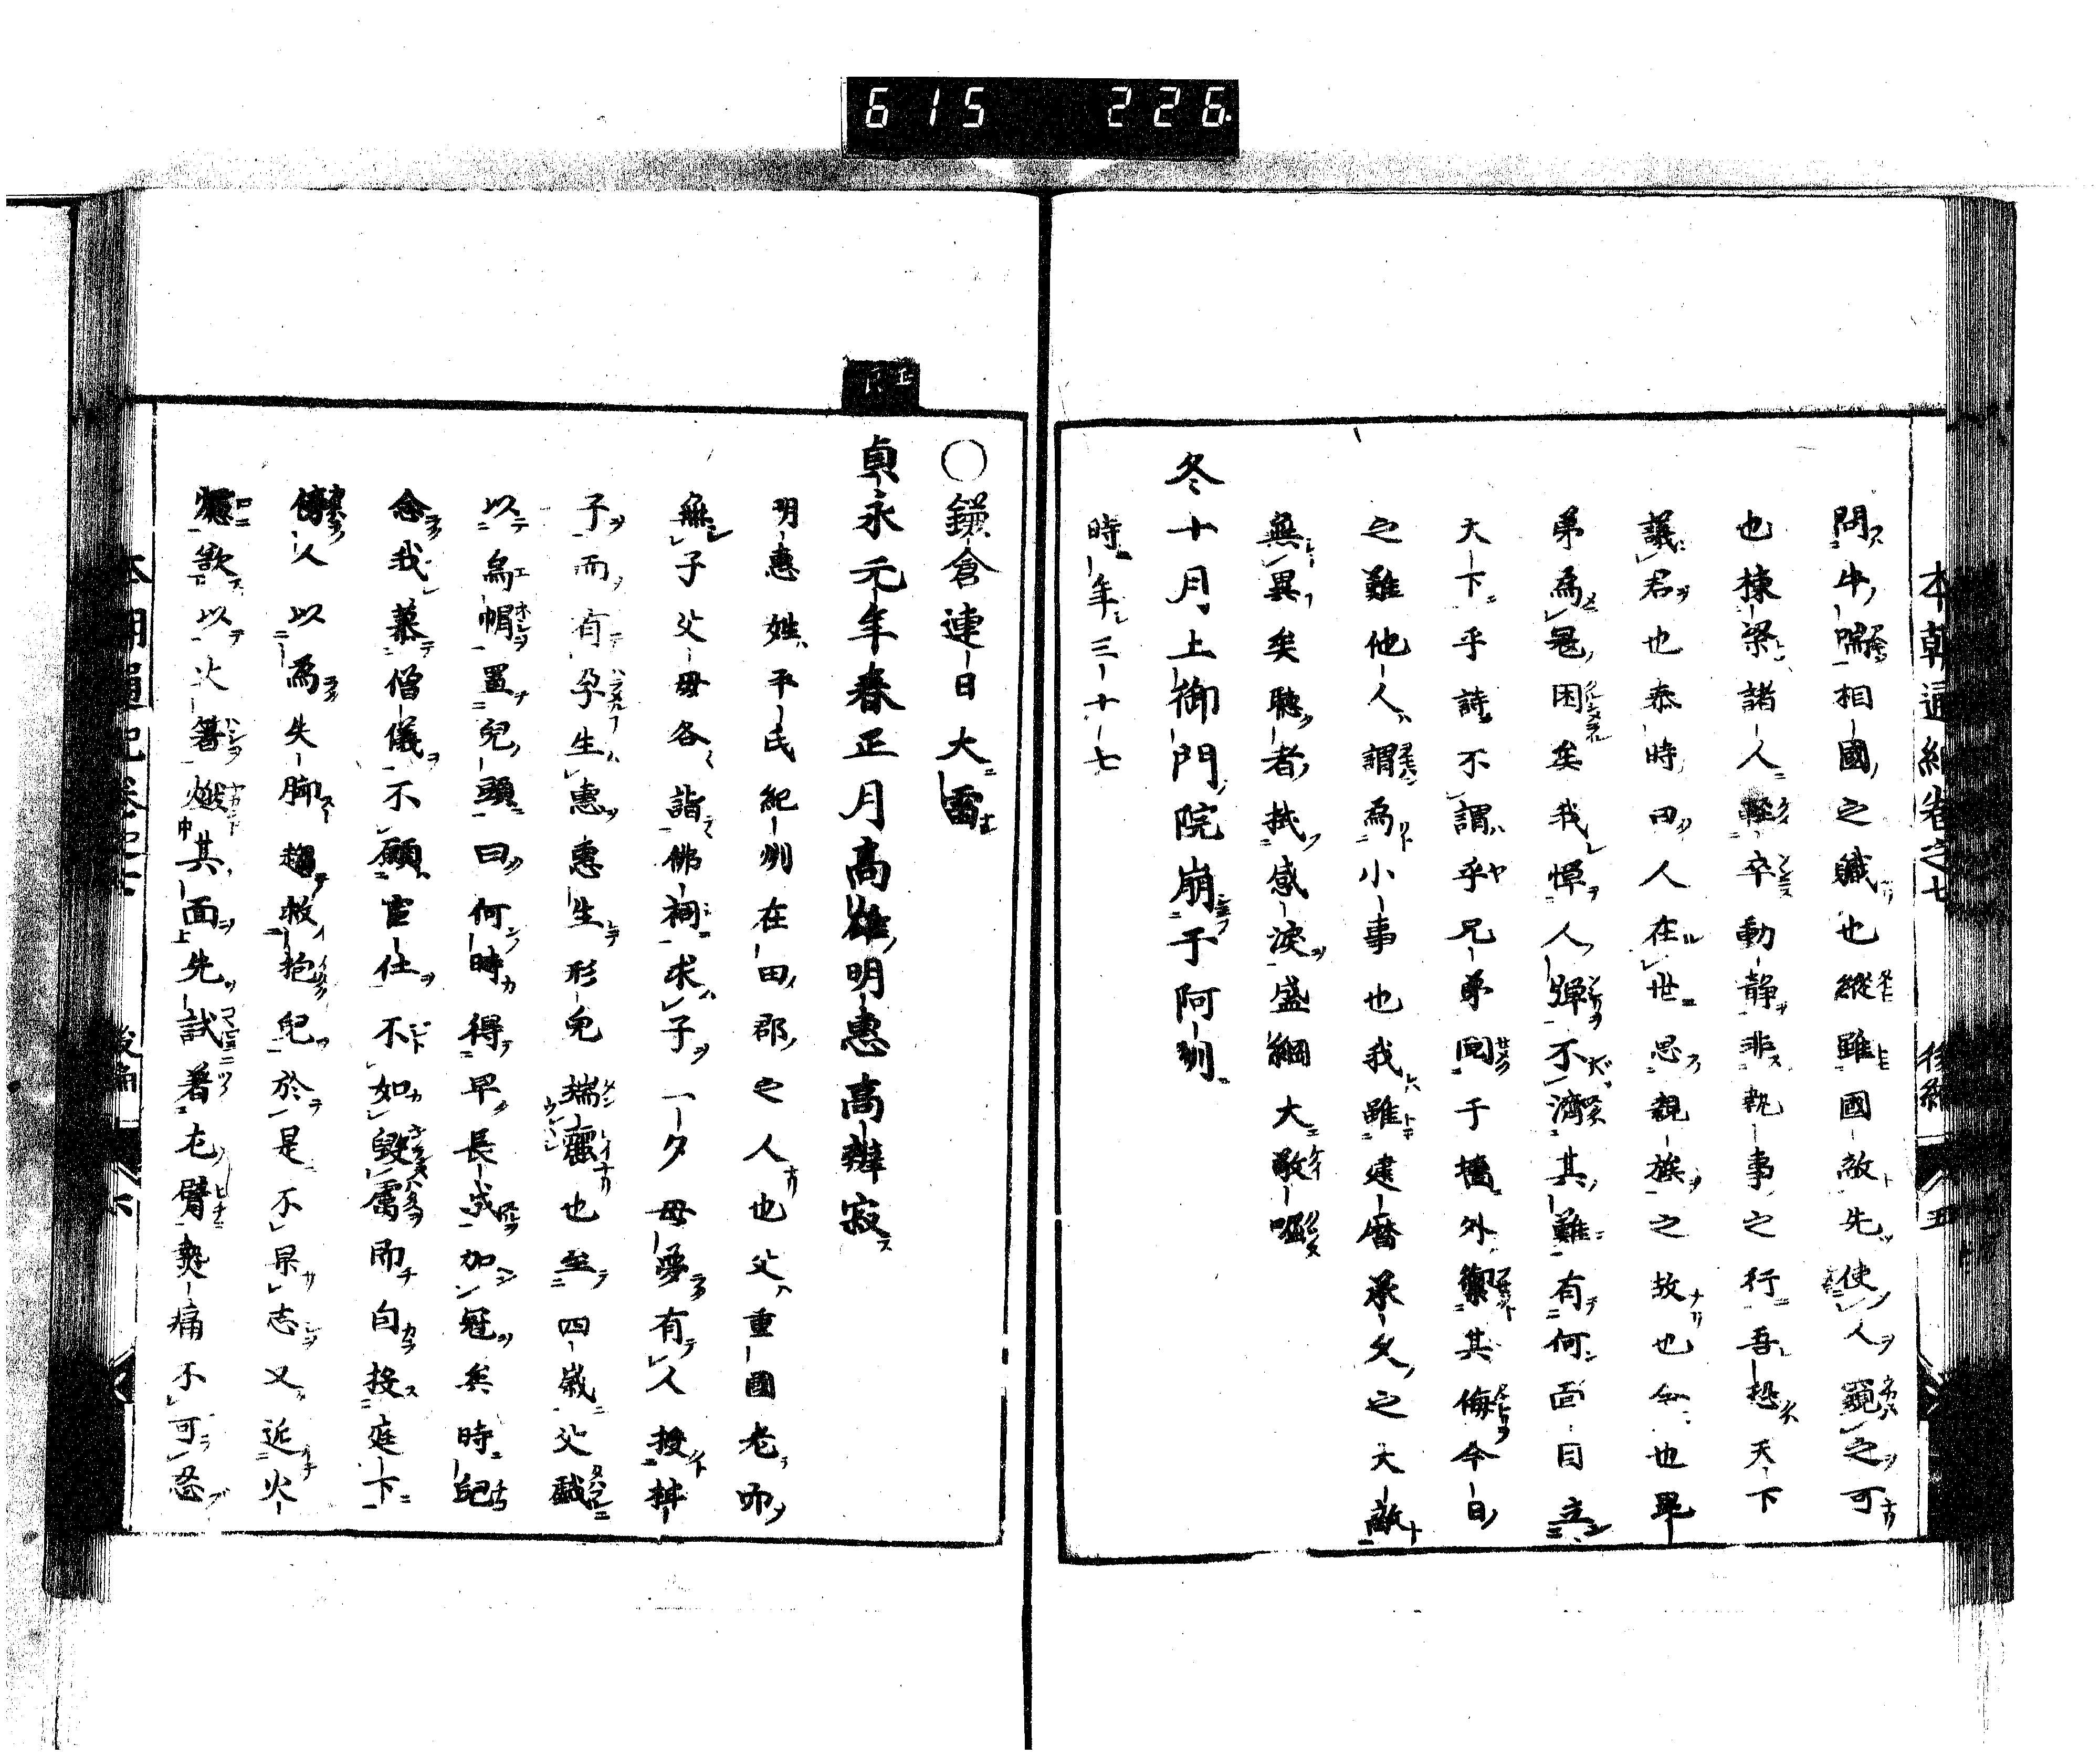 615 226
本朝通紀卷之七 後編 五
問牛喘相國之職也縱雖國敵先使人窺之可
也棟梁諸人輕卒動靜非執事之行吾恐天下
議君也泰時曰人在世思親族之故也今也毘
弟為冦困矣我憚人彈不濟其難有何面目立
天下乎詩不謂乎兄弟鬩于牆外禦其侮今日
之難他人謂為小事也我雖建曆承久之大敵
無異矣聽者拭感淚盛綱大敬嘔
冬十月上御門院崩于阿州
時年三十七
○鎌倉連日大雷
貞永元年春正月高雄明惠高辨寂
明惠姓平氏紀州在田郡之人也父重國老而
無子父母各詣佛祠求子一夕母夢有人授柑
子而有孕生惠惠生形皃端麗也至四歲父戲
以烏帽置兒頭曰何時得早長成加冠矣時記
念我慕僧儀不顧官仕不如毀膚而自投庭下
傳人以為失脚趨救抱兒於是不果志又近火
爐欲以火箸燬其面先試著左臂熱痛不可忍
本朝通紀卷之七 後編 六